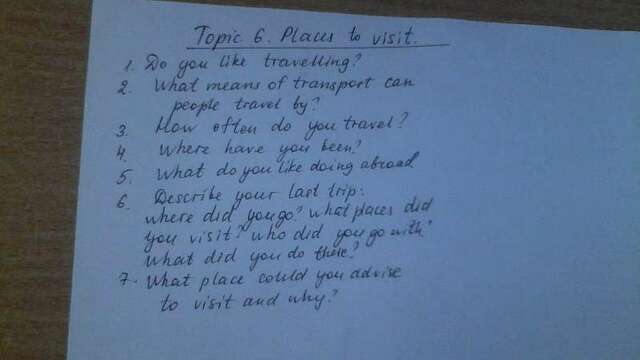 Topic 6. Places to visit.
1. Do you like travelling?
2. What means of transport can
people travel by?
3. How often do you travel?
4. Where have you been?
5. What do you like doing abroad
6. Describe your last trip:
where did you go? What places did
you visit? Who did you go with?
What did you do there?
7. What place could you advise
to visit and why?